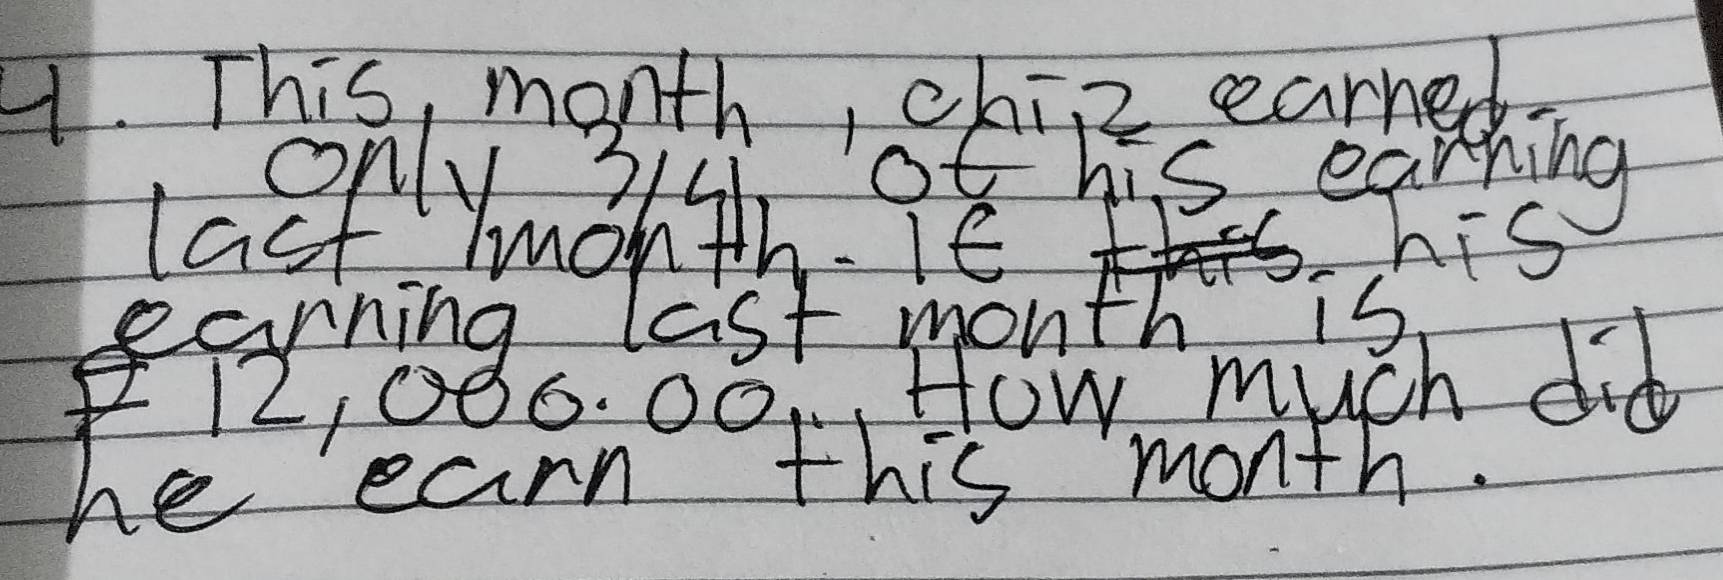 4. This month, chiz earned
only 3/4 of his earning
last month. If his
earning last month is
₱12,000.00. How much did
he earn this month.